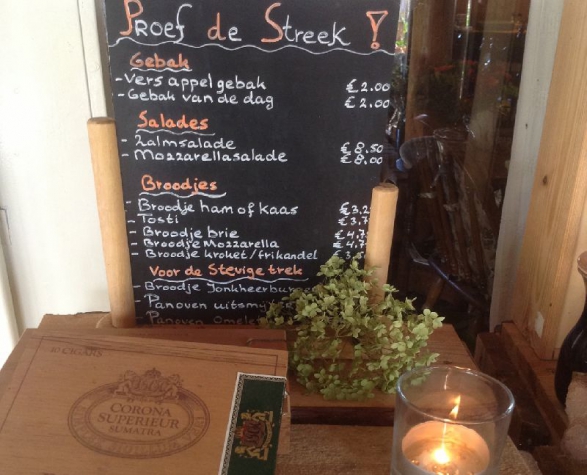 Proef de Streek !
Gebak
- Vers appelgebak € 2.00
- Gebak van de dag € 2.00
Salades
- Zalmsalade € 8.50
- Mozzarellasalade € 8.00
Broodjes
- Broodje ham of kaas
- Tosti
- Broodje brie
- Broodje Mozzarella
- Broodje kroket/frikandel
Voor de Stevige trek
- Broodje
- Panoven
- Panoven
10 CIGARS
CORONA
SUPERIEUR
SUMATRA